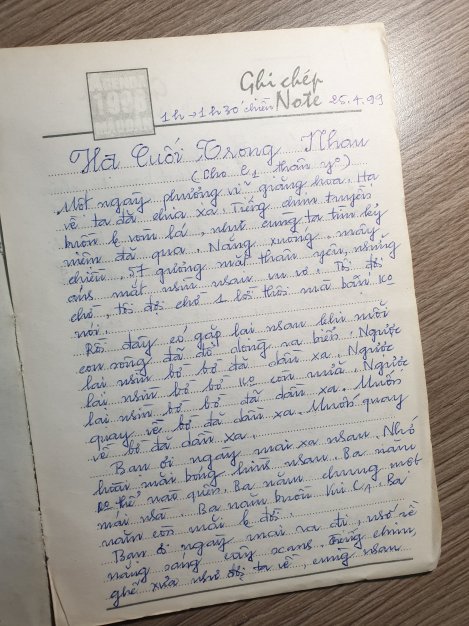 Ghi chép
Note
1h → 1h30 chiều 25.4.99
Hạ Cuối Trong Nhau
(Cho C1 thân yêu)
Một ngày phượng vĩ giăng hoa. Hạ
về ta đã chia xa. Tiếng chim truyền
buồn vòm lá, như cùng ta tìm kỷ
niệm đã qua. Nắng xuống, mây
chiều, 57 gương mặt thân yêu, những
ánh mắt nhìn nhau vu vơ. Tôi đợi
chờ, tôi đợi chờ 1 lời thôi mà bạn ko
nói.
Rồi đây có gặp lại nhau khi mỗi
con sông đã đổ dòng ra biển. Ngược
lại nhìn bờ bờ đã dần xa. Ngược
lại nhìn bờ bờ ko còn nữa. Ngược
lại nhìn bờ bờ đã dần xa. Muốn
quay về bờ đã dần xa. Muốn quay
về bờ đã dần xa.
Bạn ơi ngày mai xa nhau. Nhớ
hoài mãi bóng hình nhau. Ba năm
ko thể nào quên. Ba năm chung một
mái nhà. Ba năm buồn vui C1. Ba
năm còn mãi đời.
Bạn ơi ngày mai ra đi, nhớ về
nắng sáng cây xanh. Tiếng chim,
ghế xưa như đợi ta về, cùng nhau